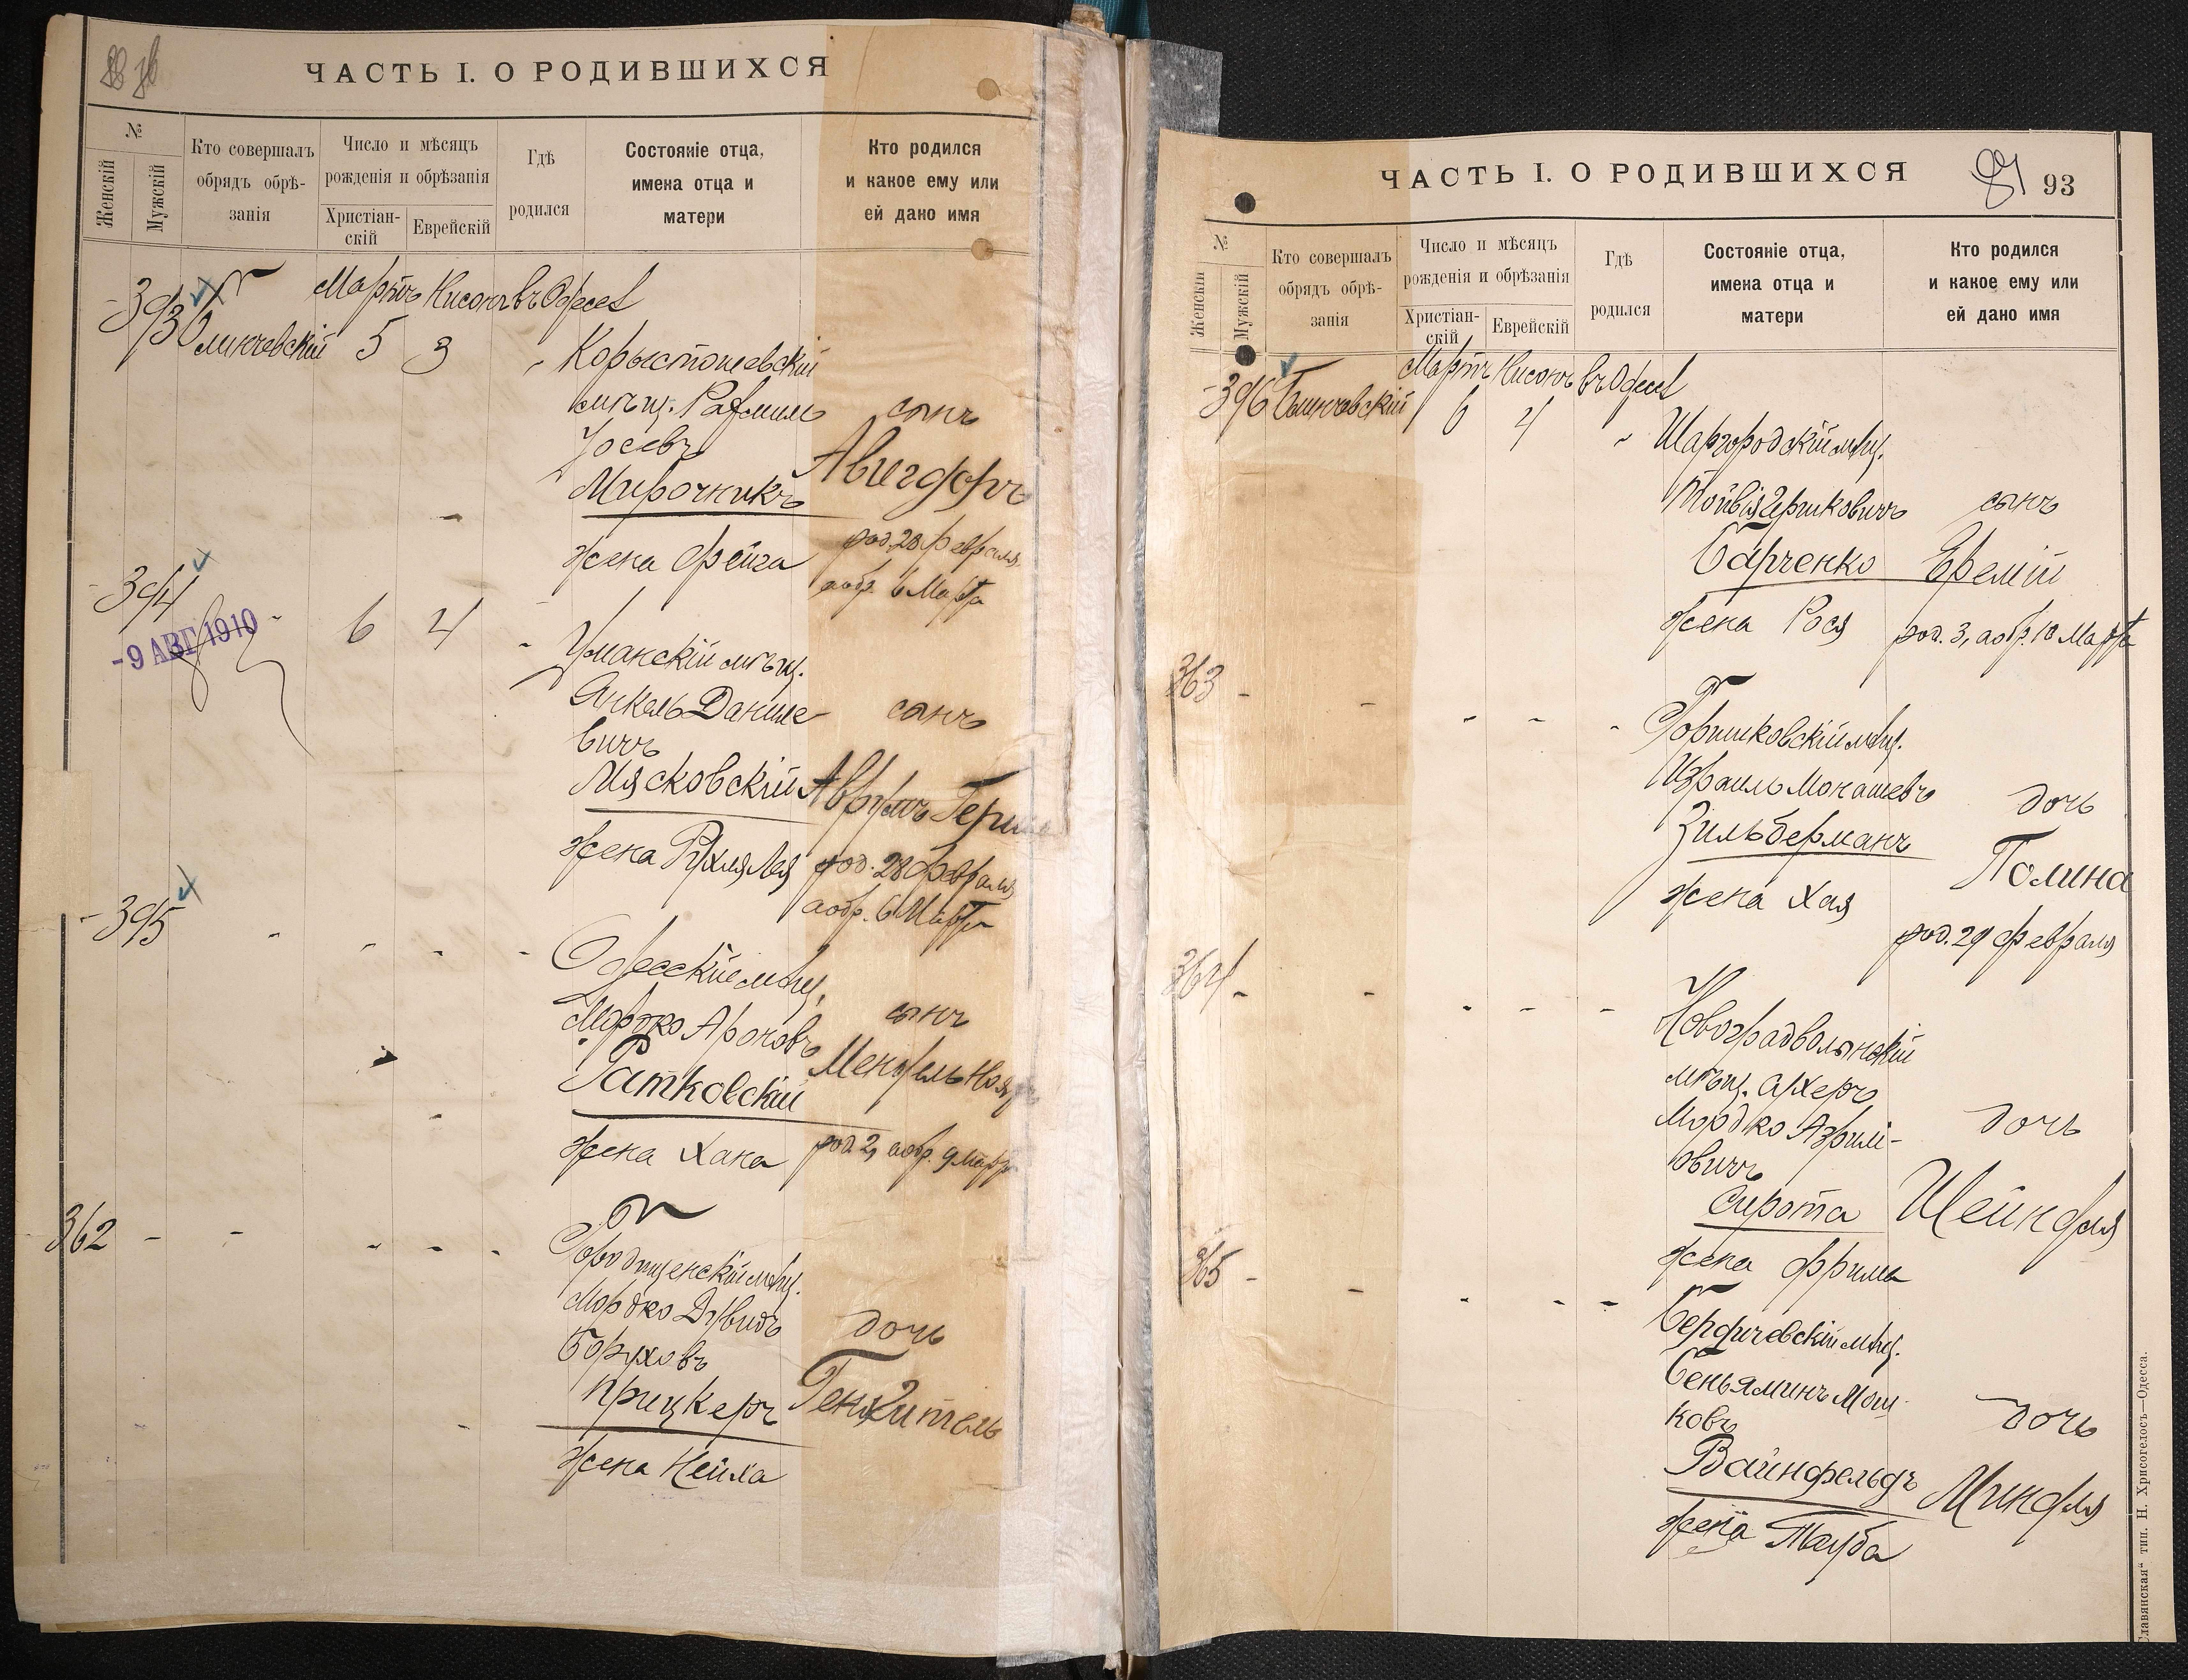 ЧАСТЬ I. О РОДИВШИХСЯ
№
Женскій
Мужскій
Кто совершалъ
обрядъ обрѣ-
занія
Число и мѣсяцъ
рожденія и обрѣзанія
Христіан-
скій
Еврейскій
Гдѣ
родился
Состояніе отца,
имена отца и
матери
Кто родился
и какое ему или
ей дано имя
393
Мартъ Нисонъ въ Одессѣ
5 3
Корыстошевскій
мѣщ. Рафаилъ
Іосевъ
Мирочникъ
жена Фейга
сынъ
Авигдоръ
род. 28 февраля
а обр. 6 Марта
394
-9 АВГ 1910
6 4
Уманскій мѣщ.
Янкель Даниле
вичъ
Мясковскій
жена Рухля Лея
сынъ
Аврумъ Герш
род. 28 февраля
а обр. 6 Марта
395
Одесскій мѣщ.
Мордко Ароновъ
Ратковскій
жена Хана
сынъ
Мендель
род. 2, а обр. 9 Марта
362
Городищенскій мѣщ.
Мордко Дувидъ
Боруховъ
Прицкеръ
жена Нейха
дочь
Геня Хитель
ЧАСТЬ I. О РОДИВШИХСЯ
93
№
Женскій
Мужскій
Кто совершалъ
обрядъ обрѣ-
занія
Число и мѣсяцъ
рожденія и обрѣзанія
Христіан-
скій
Еврейскій
Гдѣ
родился
Состояніе отца,
имена отца и
матери
Кто родился
и какое ему или
ей дано имя
396
Мартъ Нисонъ въ Одессѣ
6 4
Шаргородскій мѣщ.
Тойвія Гершковичъ
Барченко
жена Рося
сынъ
Еремій
род. 3, а обр. 10 Марта
363
Горышковскій мѣщ.
Израиль Монашевъ
Зильберманъ
жена Хая
дочь
Полина
род. 29 февраля
364
Новоградволынскій
мѣщ. Ахеръ
Мордко Азрил-
овичъ
Сирота
жена Фрима
дочь
Шейндля
365
Бердичевскій мѣщ.
Беньяминъ Мош-
ковъ
Вайнфельдъ
жена Тауба
дочь
Миндля
Славянская“ тип. Н. Хрисогелосъ—Одесса.